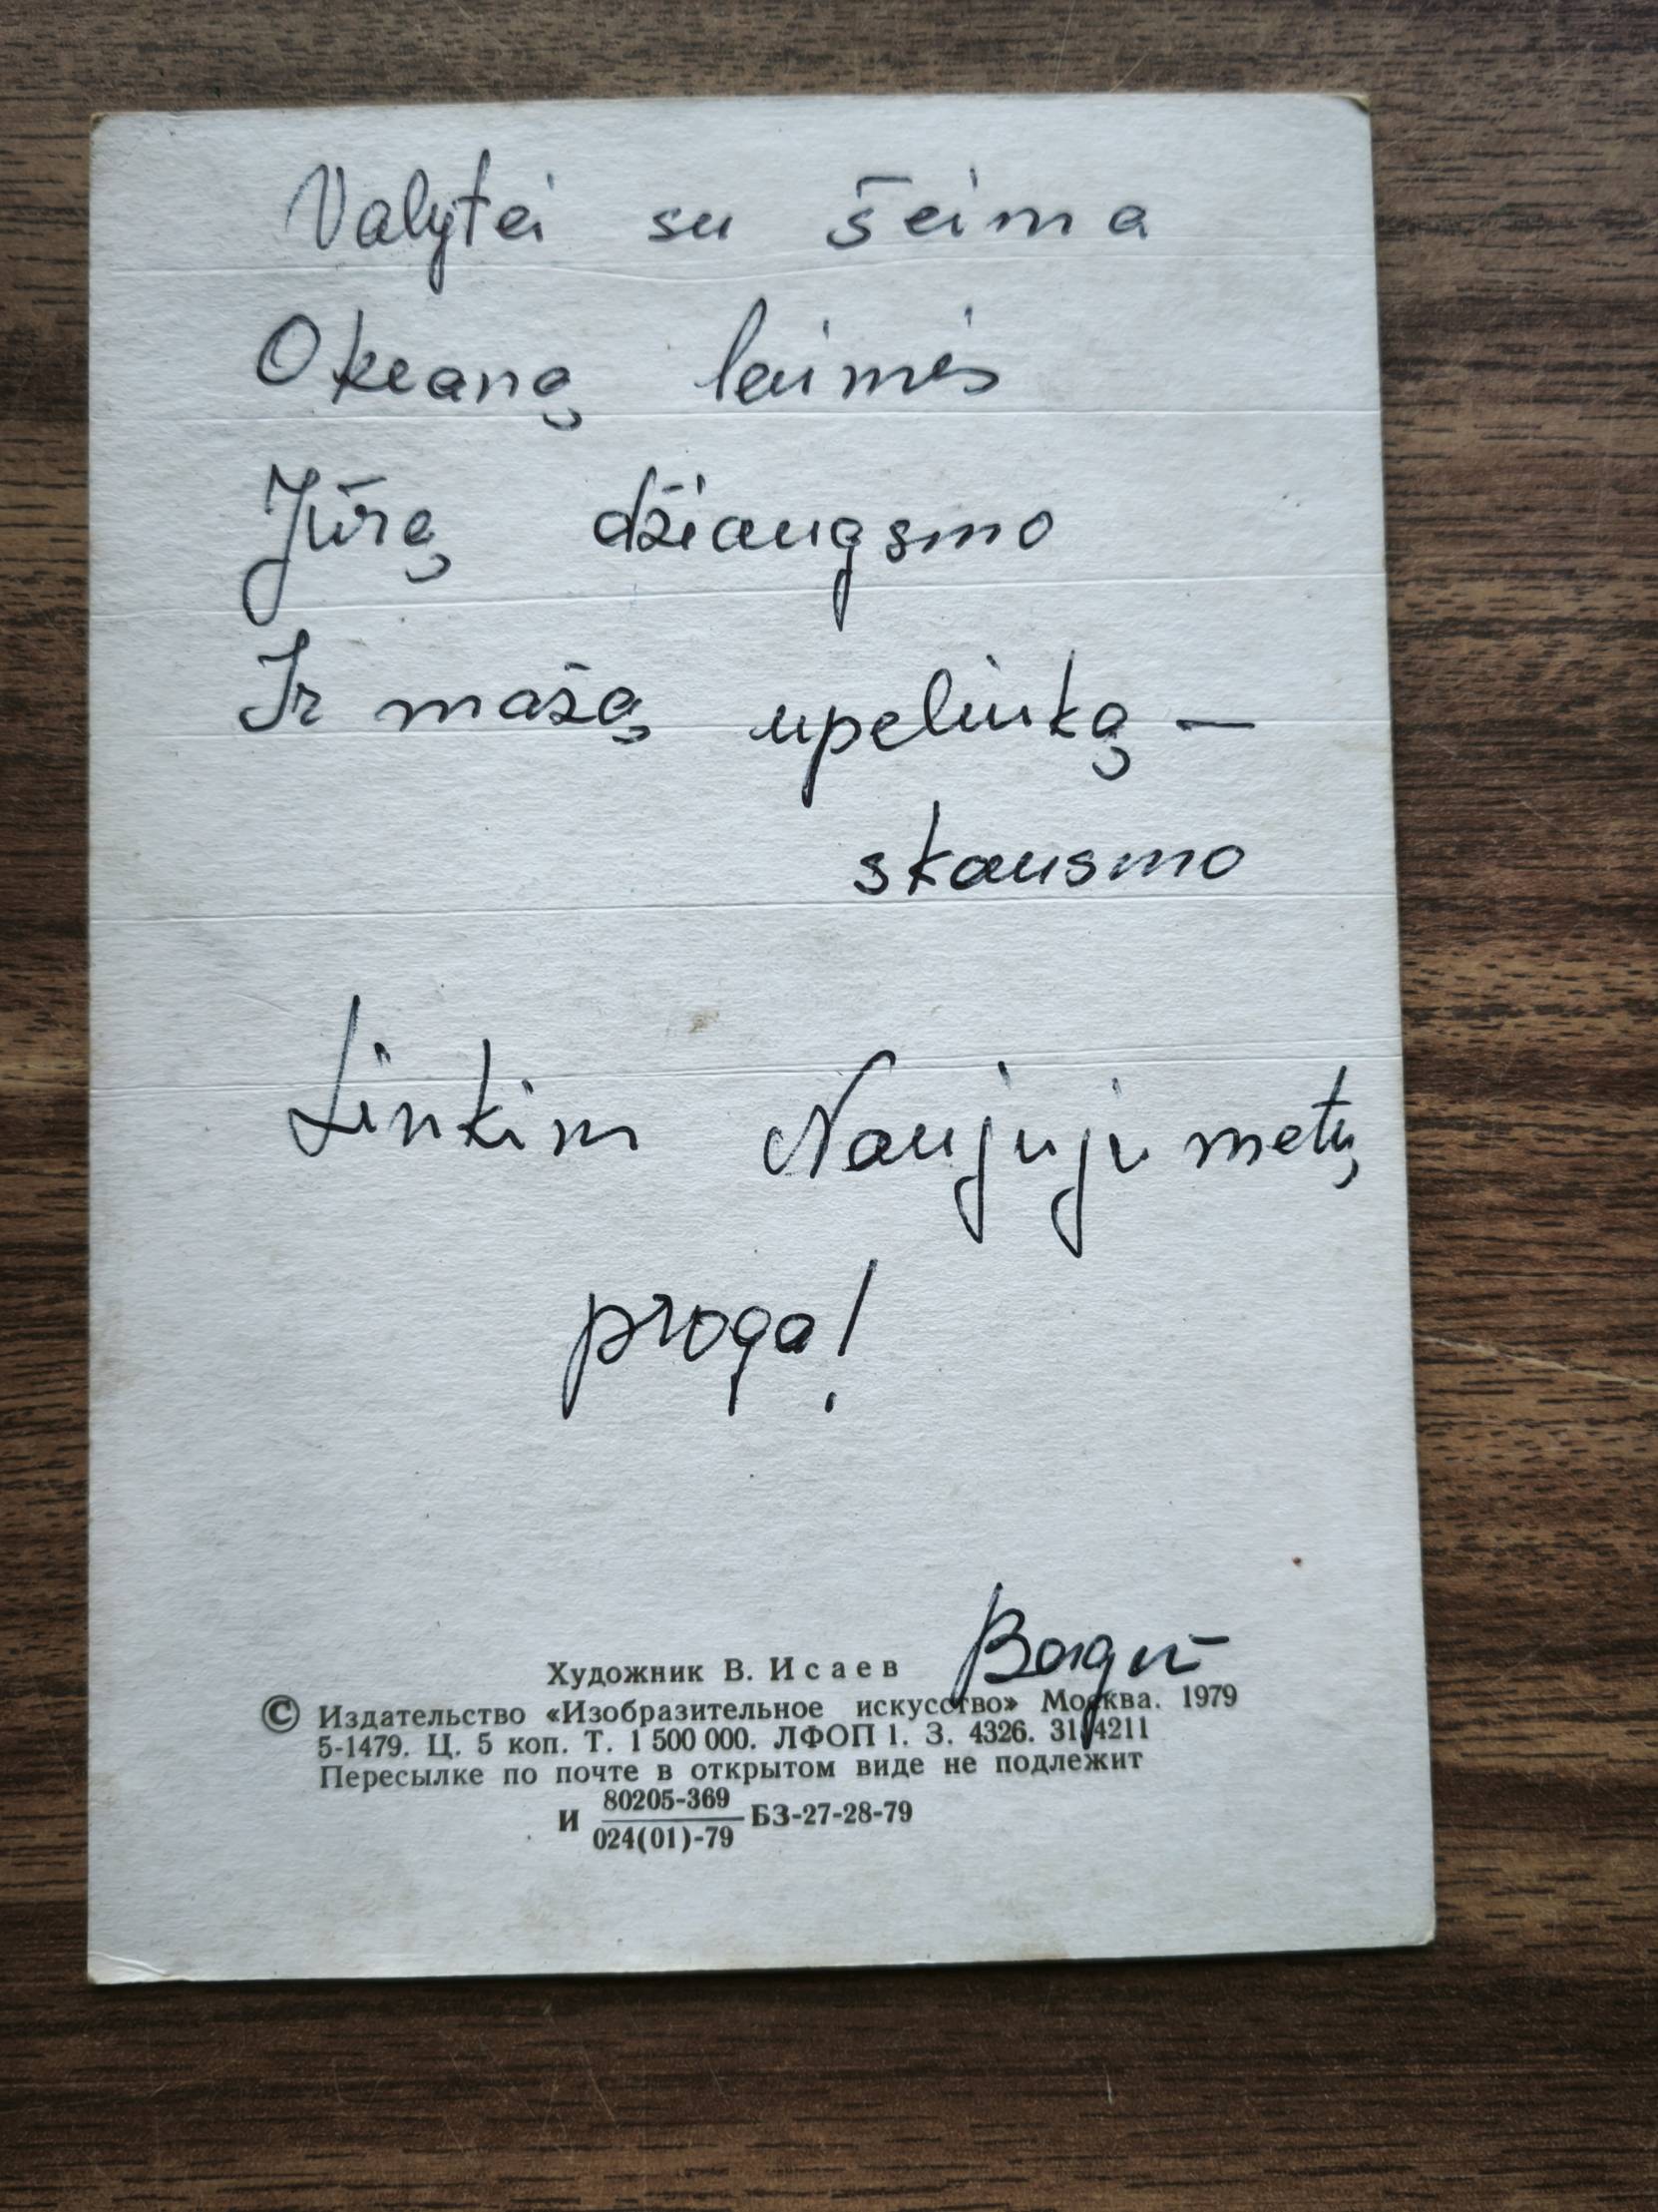 Valytei su šeima
Okeaną laimės
Jūrą džiaugsmo
Ir mažą upeliuką —
skausmo
Linkim Naujuju metų
proga!
Художник В. Исаев
© Издательство «Изобразительное искусство» Москва. 1979
5-1479. Ц. 5 коп. Т. 1 500 000. ЛФОП 1. З. 4326. 31 4211
Пересылке по почте в открытом виде не подлежит
И 80205-369 БЗ-27-28-79
024(01)-79